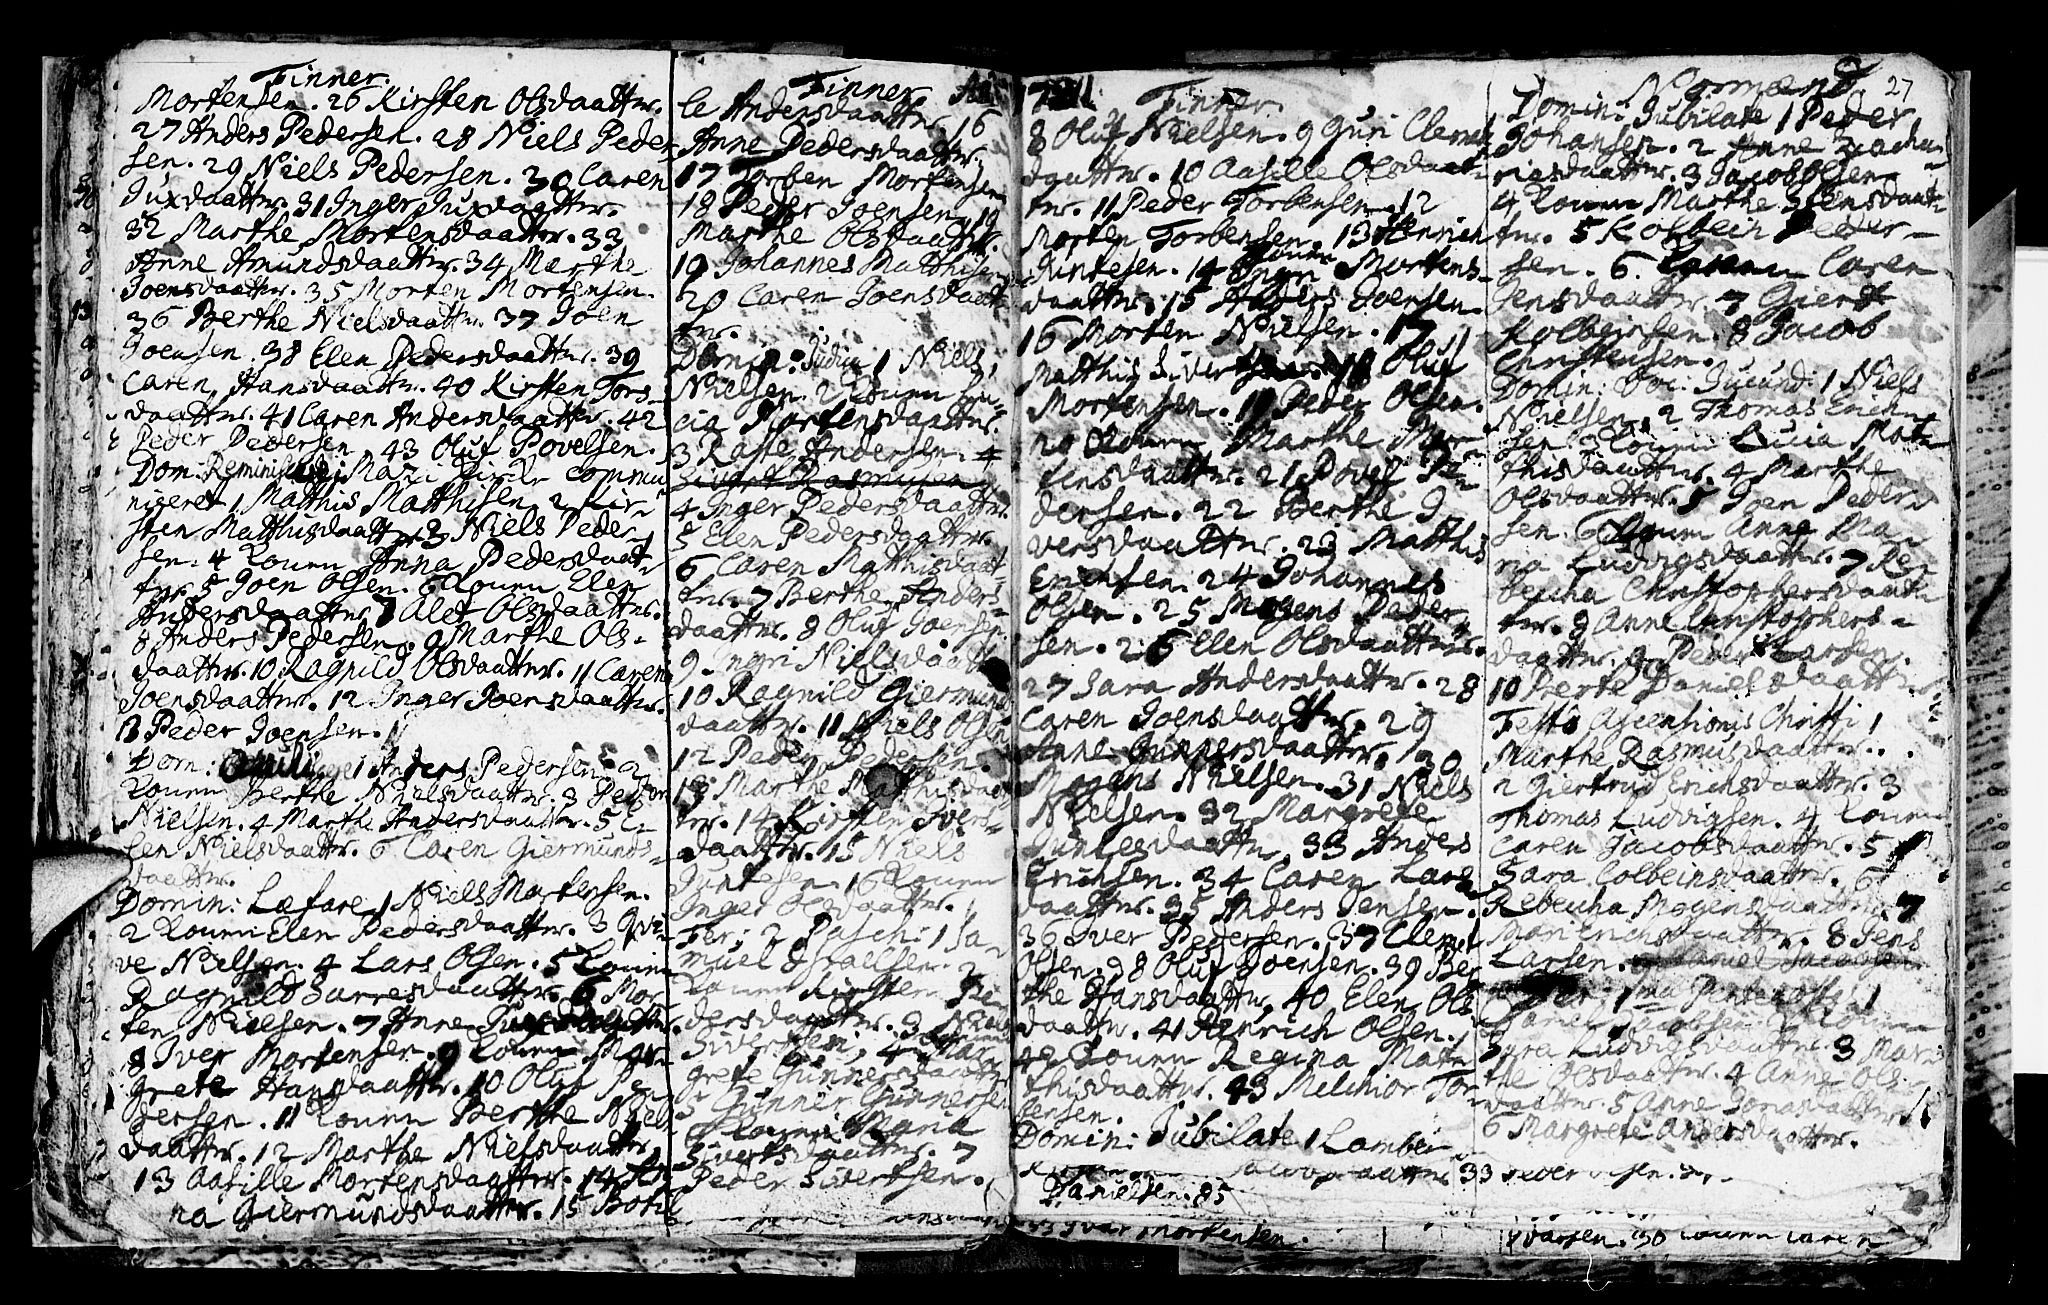 Finner.
Mortensen. 26 Kirsten Olsdaatter.
27 Anders Pedersen. 28 Niels Peder-
sen. 29 Niels Pedersen. 30 Caren
Juxdaatter. 31 Inger Juxdaatter.
32 Marthe Mortensdaatter. 33
Anne Amundsdaatter. 34 Marthe
Joensdaatter. 35 Morten Mortensen.
36 Berthe Nielsdaatter. 37 Joen
Joensen. 38 Elen Pedersdaatter. 39
Caren Hansdaatter. 40 Kirsten Tors-
daatter. 41 Caren Andersdaatter. 42
Peder Pedersen 43 Oluf Povelsen.
Dom: Reminisc: i Mazi Kirke commu-
niceret 1 Matthis Matthisen 2 Kir-
sten Matthisdaatter 3 Niels Peder-
sen. 4 Konen Anna Pedersdaat-
ter 5 Joen Olsen. 6 Konen Elen
Andersdaatter 7 Alet Olsdaatter.
8 Anders Pedersen. 9 Marthe Ols-
daatter. 10 Ragnild Olsdaatter. 11 Caren
Joensdaatter. 12 Inger Joensdaatter.
13 Peder Joensen.
Dom: 1 Anders Pedersen. 2
Konen Berthe Nielsdaatter. 3 Peder
Nielsen. 4 Marthe Andersdaatter. 5 E-
len Nielsdaatter. 6 Caren Giermunds-
daatter.
Domin: Læfare 1 Niels Mortensen.
2 Konen Elen Pedersdaatter. 3 Qvi-
ve Nielsen. 4 Lars Olsen. 5 Konen
Ragnild Sarresdaatter. 6 Mor-
ten Nielsen. 7 Anne
8 Iver Mortensen. 9 Konen Mar-
grete Hansdaatter. 10 Oluf Pe-
dersen. 11 Konen Berthe Niels
daatter. 12 Marthe Nielsdaatter
13 Aasille Mortensdaatter. 14 An
na Giermundsdaatter. 15 Botil
Finner
le Andersdaatter 16
Anne Pedersdaatter.
17 Torben Mortensen
18 Peder Joensen 19
Marthe Olsdaatter.
19 Johannes Matthisen
20 Caren Joensdaat
ter.
Domin: Judica 1 Niels
Nielsen. 2 Konen Lu-
cia Mortensdaatter.
3 Rasse Andersen. 4
Sivert Rasmusen
4 Inger Pedersdaatter.
5 Elen Pedersdaatter.
6 Caren Matthisdaat-
ter. 7 Berthe Anders-
daatter. 8 Oluf Joensen.
9 Ingri Nielsdaatter
10 Ragnild Giermunds
daatter. 11 Niels Olsen
12 Peder Pedersen.
13 Marthe Matthisdaat
ter. 14 Kirsten Ivers-
daatter. 15 Niels
Juntesen. 16 Konen
Inger Olsdaatter.
Fer: 2 Pasch: 1 Sa-
muel Israelsen. 2
Konen Kirsten Pe-
dersdaatter. 3 Niels
Sivertsen. 4 Mar-
grete Gunnersdaatter
5 Gunner Gunnersen
6 Konen Maria
Sivertsdaatter. 7
Peder Sivertsen.
Finner.
8 Oluf Nielsen. 9 Guri Clemet
daatter. 10 Aasille Olsdaat-
ter. 11 Peder Torbensen. 12
Morten Torbensen. 13 Henrich
Juntesen. 14 Konen Ingri Mortens-
daatter. 15 Anders Joensen.
16 Morten Nielsen. 17
Matthis Sivertsen. 18 Oluf
Mortensen. 19 Peder Olsen.
20 Konen Marthe Mor-
tensdaatter. 21 Povel Pe-
dersen. 22 Berthe I-
versdaatter. 23 Matthis
Erichsen. 24 Johannes
Olsen. 25 Mogens Peder-
sen. 26 Elen Olsdaatter.
27 Sara Andersdaatter. 28
Caren Joensdaatter. 29
Anne Gunnersdaatter. 30
Mogens Nielsen. 31 Niels
Nielsen. 32 Margrete
Juntesdaatter. 33 Anders
Erichsen. 34 Caren Lars
daatter. 35 Anders Jensen.
36 Iver Pedersen. 37 Clemet
Olsen. 38 Oluf Joensen. 39 Ber
the Hansdaatter. 40 Elen Ols
daatter. 41 Henrich Olsen.
42 Konen Regina Mat-
thisdaatter. 43 Melchior Tor-
bensen.
Domin: Jubilate 1 Lamber
33 Peder Olsen. 34
Danielsen. 35
Ivar Mortensen.
Normænd. 27
Domin: Jubilate 1 Peder
Johansen. 2 Anne Zacha-
riesdaatter. 3 Jacob Olsen
4 Konen Marthe Stensdaat-
ter. 5 Kolbein Peder-
sen. 6. Konen Caren
Jensdaatter. 7 Giert
Kolbeinsen. 8 Jacob
Christensen.
Domin: Voc: Jucund: 1 Niels
Nielsen. 2 Thomas Erich-
sen. 3 Konen Lucia Mat-
thisdaatter. 4 Marthe
Olsdaatter. 5 Joen Peder-
sen. 6 Konen Anne Ma-
ria Ludvigsdaatter. 7 Re-
becha Christophersdaat-
ter. 8 Anne Christophers-
daatter. 9 Peder Larsen.
10 Berte Danielsdaatter.
Festo Ascensionis Christi 1
Marthe Rasmusdaatter.
2 Giertrud Erichsdaatter. 3
Thomas Ludvigsen. 4 Konen
Caren Jacobsdaatter. 5
Sara Colbeinsdaatter. 6
Rebecha Mogensdaatter. 7
Mari Erichsdaatter. 8 Jens
Larsen. Daniel Jacobsen
Fer: 1ma Pentecost: 1
Daniel Jacobsen 2 Konen
Sara Ludvigsdaatter. 3 Mar-
the Olsdaatter. 4 Anne Ols-
daatter. 5 Anne Jonasdaatter
6 Margrete Andersdaatter.
Ivarsen. 30 Konen Caren